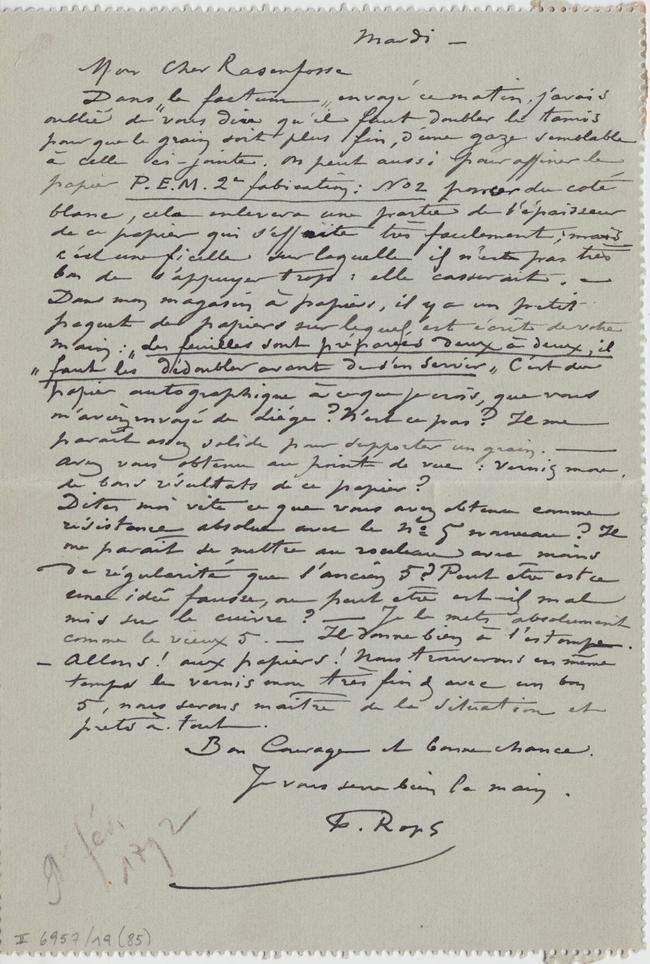 Mardi –
Mon Cher Rassenfosse
Dans le factum „ envoyé ce matin, j'avais
oublié de vous dire qu'il faut doubler le tamis
pour que le grain soit plus fin, d'une gaze semblable
à celle ci-jointe. On peut aussi pour affiner le
papier P.E.M. 2e fabrication: No 2 poncer du coté
blanc, cela enlevera une partie de l'épaisseur
de ce papier qui s'effrite très facilement; mais
c'est une ficelle sur laquelle il n'est pas très
bon de s'appuyer trop: elle casserait. –
Dans mon magasin à papiers, il y a un petit
paquet de papiers sur lequel est écrit de votre
main: „Les feuilles sont préparées deux à deux, il
„ faut les dédoubler avant de s'en servir „ C'est du
papier autographique à ce que je crois, que vous
m'avez envoyé de Liége? N'est ce pas? Il me
paraît assez solide pour supporter un grain. —
avez vous obtenu au point de vue: vernis mou,
de bons résultats de ce papier?
Dites moi vite ce que vous avez obtenu comme
résistance absolue avec le no 5 nouveau? Il
me parait se mettre au rouleau avec moins
de régularité que l'ancien 5? Peut etre est ce
une idée fausse, ou peut être est-il mal
mis sur le cuivre? — Je le mets absolument
comme le vieux 5. – Il donne bien à l'estompe.
– Allons! aux papiers! Nous trouverons en même
temps le vernis mou très fin & avec un bon
5, nous serons maître de la situation et
prets à tout.
Bon Courage et bonne chance.
Je vous serre bien la main.
F. Rops
9 fév.
1892
II 6957/19 (85)